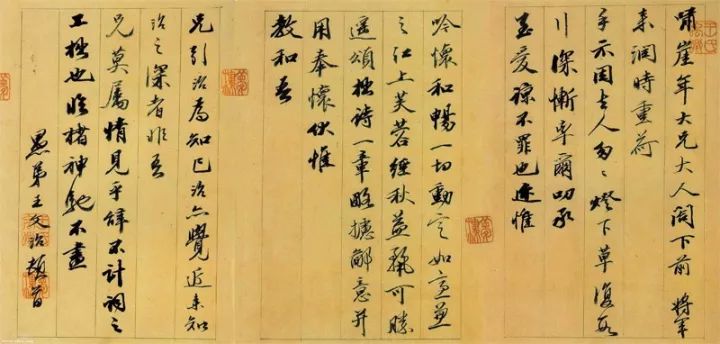 嘯崖年大兄大人閣下前 將軍
来潤時重荷
手示因去人匆匆燈下草復數
行深慚率爾叨承
至愛諒不罪也近惟
吟懷和暢一切動定如意
江上芙蓉秋益艷可勝
遥頌拙詩一章略攄鄙意并
用奉懷伏惟
教和
兄引治為知己治亦覺近来知
治之深者非吾
兄莫屬情見乎辭不計詞之
工拙也臨楮神馳不盡
愚弟王文治頓首